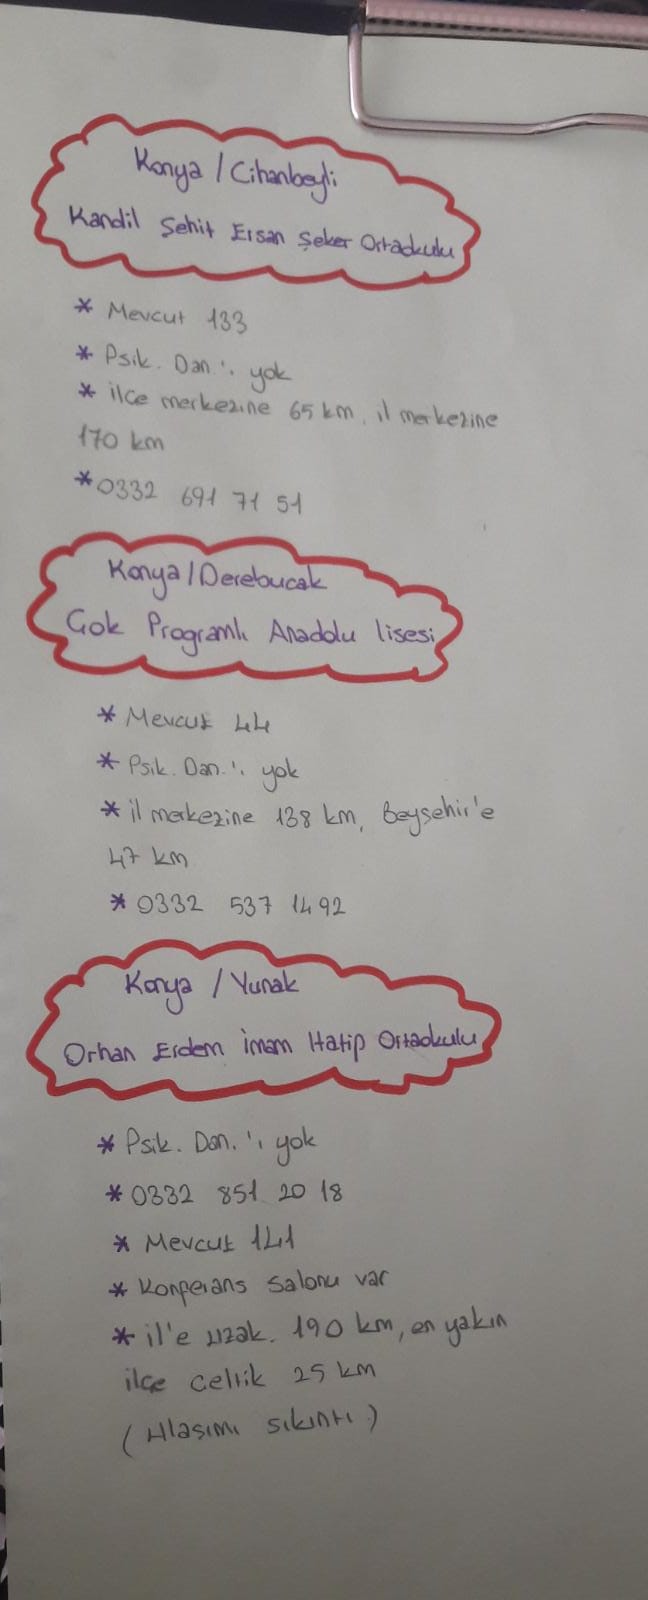 Konya / Cihanbeyli
Kandil Şehit Ersan Şeker Ortaokulu
* Mevcut 133
* Psik. Dan.'ı yok
* ilçe merkezine 65 km, il merkezine
170 km
* 0332 691 71 51
Konya / Derebucak
Çok Programlı Anadolu lisesi
* Mevcut 44
* Psik. Dan.'ı yok
* il merkezine 138 km, Beyşehir'e
47 km
* 0332 537 14 92
Konya / Yunak
Orhan Erdem İmam Hatip Ortaokulu
* Psik. Dan.'ı yok
* 0332 851 20 18
* Mevcut 141
* Konferans salonu var
* il'e uzak. 190 km, en yakın
ilçe çeltik 25 km
(Ulaşımı sıkıntı)